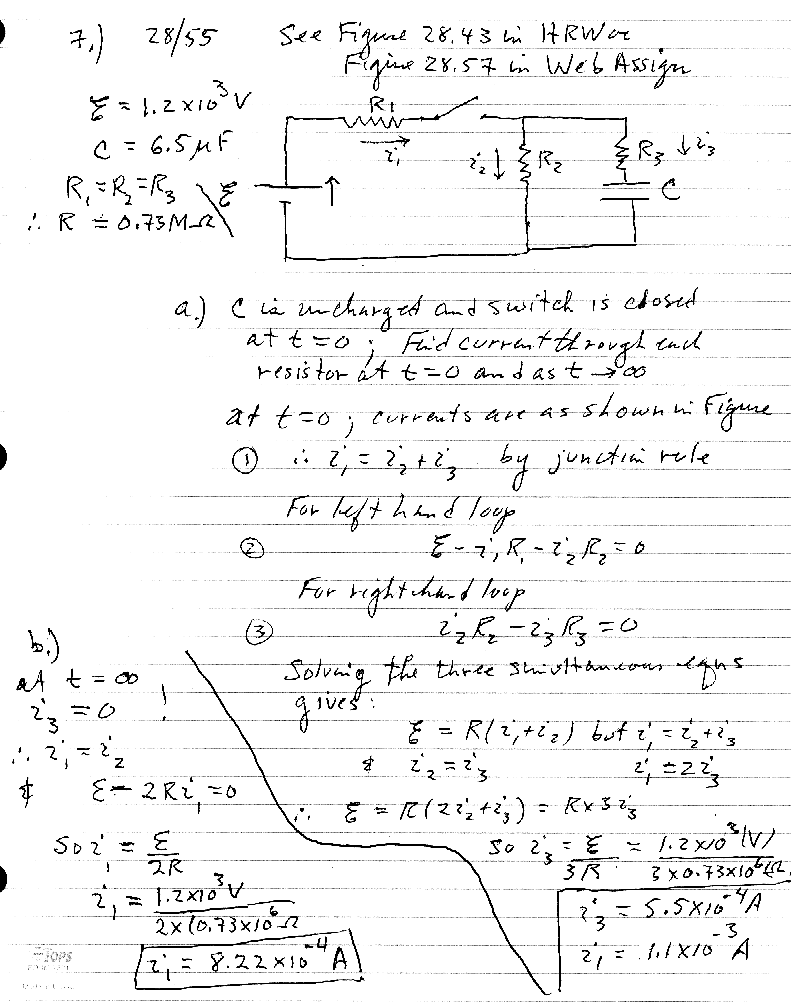 7.) 28/55 See Figure 28.43 in HRW or
Figure 28.57 in Web Assign
ℰ = 1.2 x 10³ V
C = 6.5 μF
R₁ = R₂ = R₃
∴ R = 0.73 MΩ
R₁
i₁
i₂ R₂
R₃ i₃
ℰ
C
a.) C is uncharged and switch is closed
at t = 0 ; Find current through each
resistor at t = 0 and as t → ∞
at t = 0 ; currents are as shown in Figure
① ∴ i₁ = i₂ + i₃ by junction rule
For left hand loop
② ℰ - i₁R₁ - i₂R₂ = 0
For right hand loop
③ i₂R₂ - i₃R₃ = 0
Solving the three simultaneous eqns
gives:
ℰ = R(i₁ + i₂) but i₁ = i₂ + i₃
& i₂ = i₃ i₁ = 2i₃
∴ ℰ = R(2i₂ + i₃) = R x 3i₃
So i₃ = ℰ/3R = 1.2 x 10³ (V)/3 x 0.73 x 10⁶ Ω
i₃ = 5.5 x 10⁻⁴ A
i₁ = 1.1 x 10⁻³ A
b.)
at t = ∞
i₃ = 0 !
∴ i₁ = i₂
& ℰ - 2Ri₁ = 0
So i₁ = ℰ/2R
i₁ = 1.2 x 10³ V/2 x (0.73 x 10⁶ Ω
i₁ = 8.22 x 10⁻⁴ A
TOPS